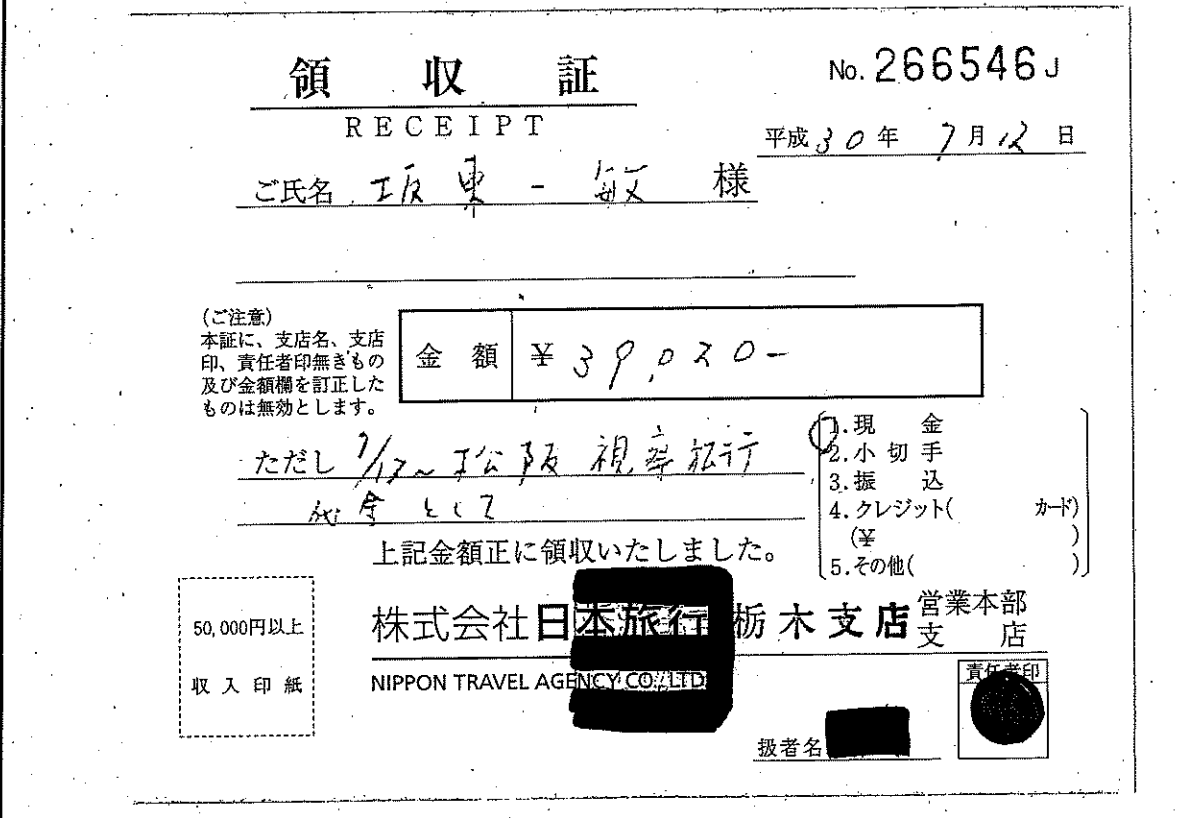 領収証
No. 266546J
RECEIPT
平成30年 7月12日
ご氏名 坂東一敏 様
(ご注意)
本証に、支店名、支店
印、責任者印無きもの
及び金額欄を訂正した
ものは無効とします。
金額 ¥39,020-
ただし 7/17~松阪視察旅行
代金として
1.現金
2.小切手
3.振込
4.クレジット( カード)
(¥ )
5.その他( )
上記金額正に領収いたしました。
50,000円以上
収入印紙
株式会社日本旅行 栃木支店 営業本部
支店
NIPPON TRAVEL AGENCY CO.,LTD.
責任者印
扱者名